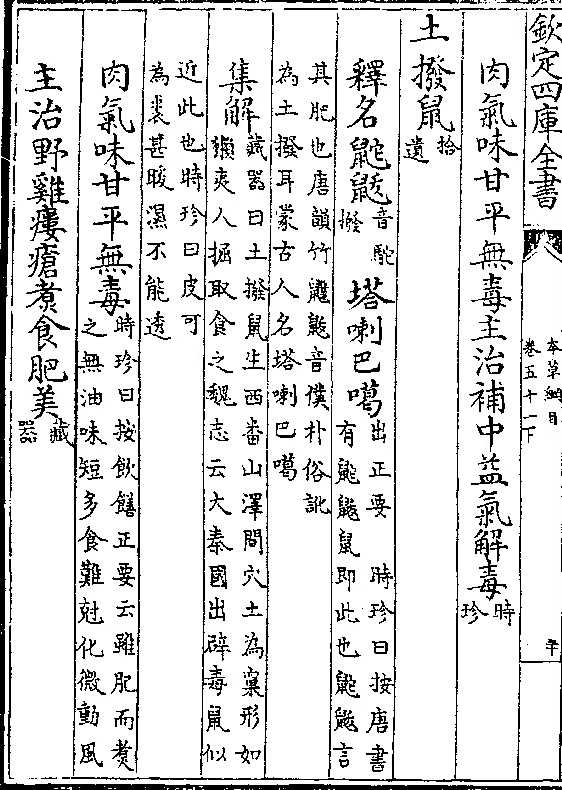 欽定四庫全書
本草綱目
卷五十一下
平
肉氣味甘平無毒主治補中益氣解毒時珍
土撥鼠拾遺
釋名鼧鼥音駝撥塔喇巴噶出正要 時珍曰按唐書有鼧鼥鼠即此也鼧鼥言
其肥也唐韻竹䶉鼥音僕朴俗訛為土撥耳蒙古人名塔喇巴噶
集解藏器曰土撥鼠生西番山澤間穴土為窠形如獺夷人掘取食之魏志云大秦國出辟毒鼠似
近此也時珍曰皮可為裘甚暖濕不能透
肉氣味甘平無毒時珍曰按飲饍正要云雖肥而煑之無油味短多食難尅化微動風
主治野雞瘻瘡煑食肥美藏器